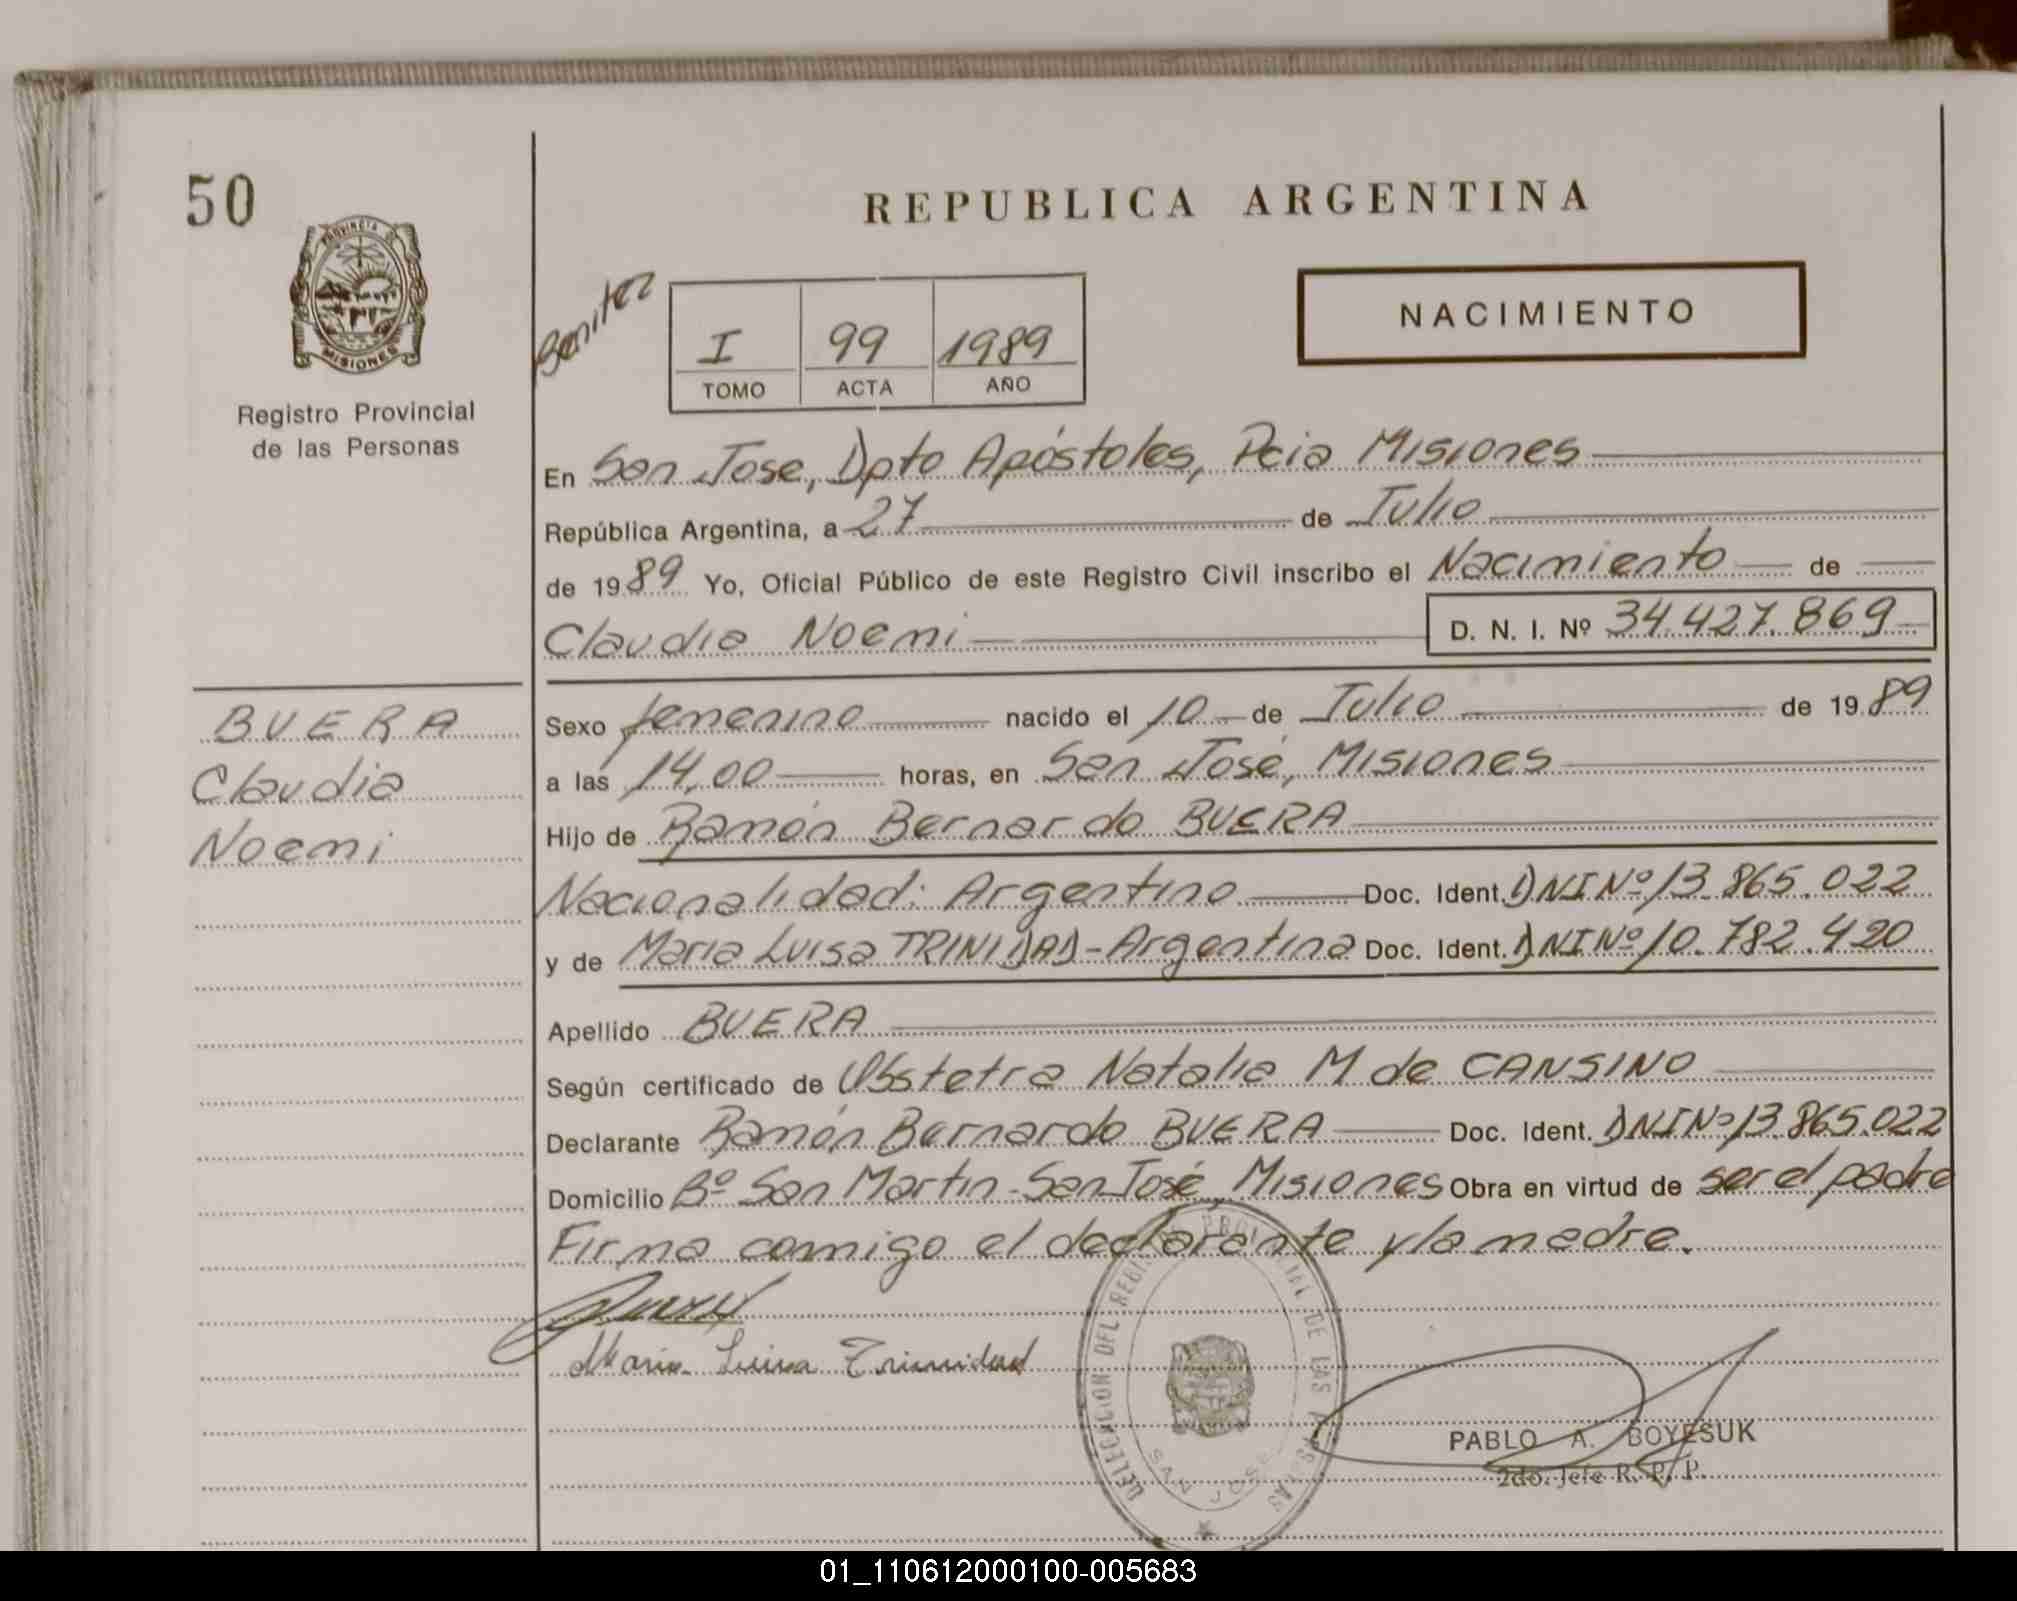 50
REPUBLICA ARGENTINA
PROVINCIA DE
MISIONES
Registro Provincial
de las Personas
Benitez
I 99 1989
TOMO ACTA AÑO
NACIMIENTO
En San Jose, Dpto Apóstoles, Pcia Misiones
República Argentina, a 27 de Julio
de 1989 Yo, Oficial Público de este Registro Civil inscribo el Nacimiento de
Claudia Noemi D. N. I. Nº 34.427.869
BUERA
Claudia
Noemi
Sexo femenino nacido el 10 de Julio de 1989
a las 14,00 horas, en San José, Misiones
Hijo de Ramón Bernardo BUERA
Nacionalidad: Argentino Doc. Ident. DNI Nº 13.865.022
y de Maria Luisa TRINIDAD - Argentina Doc. Ident. DNI Nº 10.782.420
Apellido BUERA
Según certificado de Obstetra Natalia M de CANSINO
Declarante Ramón Bernardo BUERA Doc. Ident. DNI Nº 13.865.022
Domicilio Bº San Martin - San José, Misiones Obra en virtud de ser el padre
Firma comigo el declarante y la madre.
Maria Luisa Trinidad
DELEGACION DEL REGISTRO PROVINCIAL DE LAS PERSONAS
SAN JOSE
PABLO A. BOYESUK
2do. Jefe R. P. P.
01_110612000100-005683